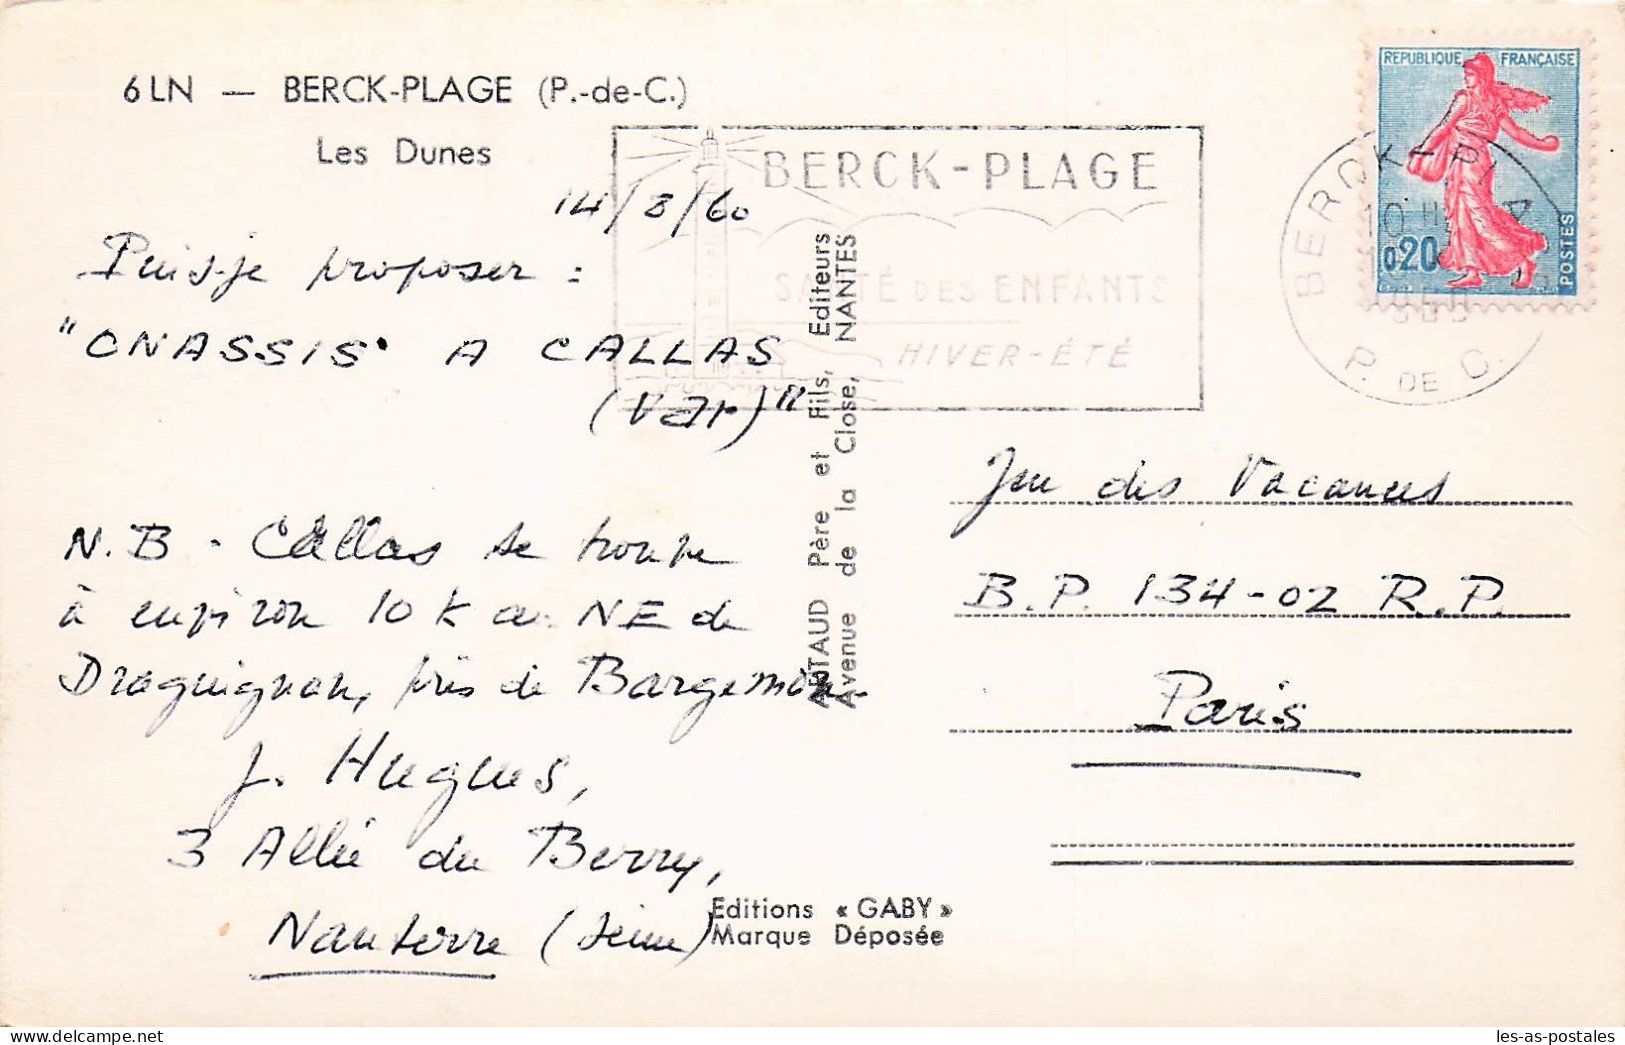 6 LN — BERCK-PLAGE (P.-de-C.)
Les Dunes
14/8/60
Puis-je proposer :
"ONASSIS A CALLAS
(Var)"
N.B - Callas se trouve
à environ 10 k au NE de
Draguignan, près de Bargemon.
J. Hugues,
3 Allée du Berry,
Nanterre (Seine)
Editions « GABY »
Marque Déposée
ARTAUD Père et Fils, Editeurs
Avenue de la Close, NANTES
BERCK-PLAGE
SANTÉ DES ENFANTS
HIVER-ÉTÉ
BERCK-PL
10 H
P. DE C.
REPUBLIQUE FRANÇAISE
0,20
POSTES
Jeu des Vacances
B.P. 134-02 R.P.
Paris
les-as-postales